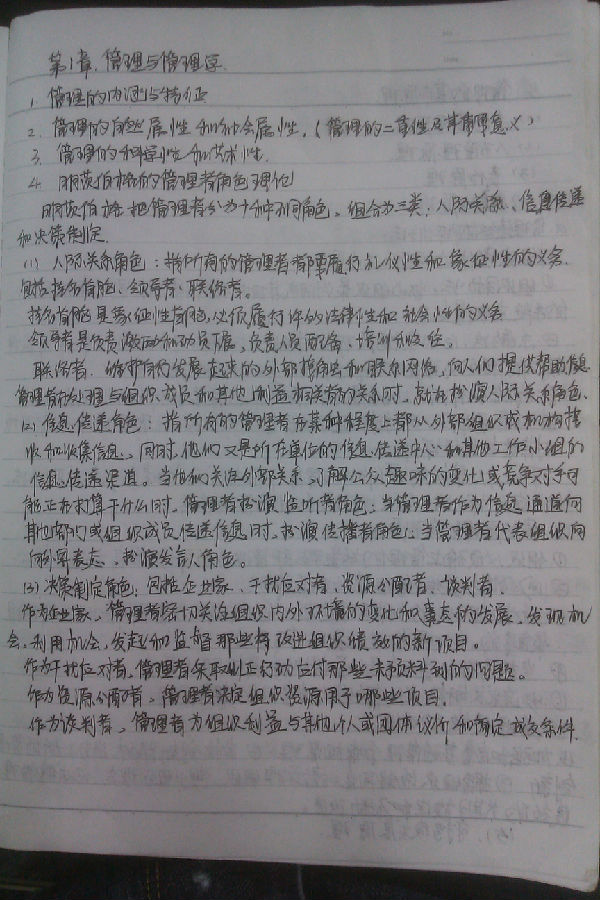 第1章 管理与管理学
1. 管理的内涵与特征
2. 管理的自然属性和社会属性.(管理的二重性及其重要意义)
3. 管理的科学性和艺术性.
4. 明茨伯格的管理者角色理论
明茨伯格把管理者分为十种不同角色。组合为三类:人际关系、信息传递
和决策制定.
(1) 人际关系角色:指所有的管理者都要履行礼仪性和象征性的义务.
包括挂名首脑、领导者、联络者。
挂名首脑是象征性首脑,必须履行许多法律性和社会性的义务
领导者是负责激励和动员下属,负责人员配备、培训和
联络者,维护自行发展起来的外部接触和联系网络,向人们提供帮助信息
管理者在处理与组织成员和其他利益相关者的关系时,就在扮演人际关系角色.
(2) 信息传递角色:指所有的管理者在某种程度上都从外部组织或机构接
收和收集信息。同时,他们又是所在单位的信息传递中心和其他工作小组的
信息传递渠道。当他们关注外部关系,了解公众趣味的变化或竞争对手可
能正在打算干什么时,管理者扮演监听者角色;当管理者作为信息通道向
其他部门或组织成员传送信息时,扮演传播者角色;当管理者代表组织向
外界表态,扮演发言人角色。
(3) 决策制定角色:包括企业家、干扰应对者、资源分配者、谈判者.
作为企业家,管理者密切关注组织内外环境的变化和事态的发展,发现机
会,利用机会,发起和监督那些将改进组织绩效的新项目。
作为干扰应对者,管理者采取纠正行动应付那些未预料到的问题。
作为资源分配者,管理者决定组织资源用于哪些项目.
作为谈判者,管理者为组织利益与其他个人或团体议价和商定成交条件.